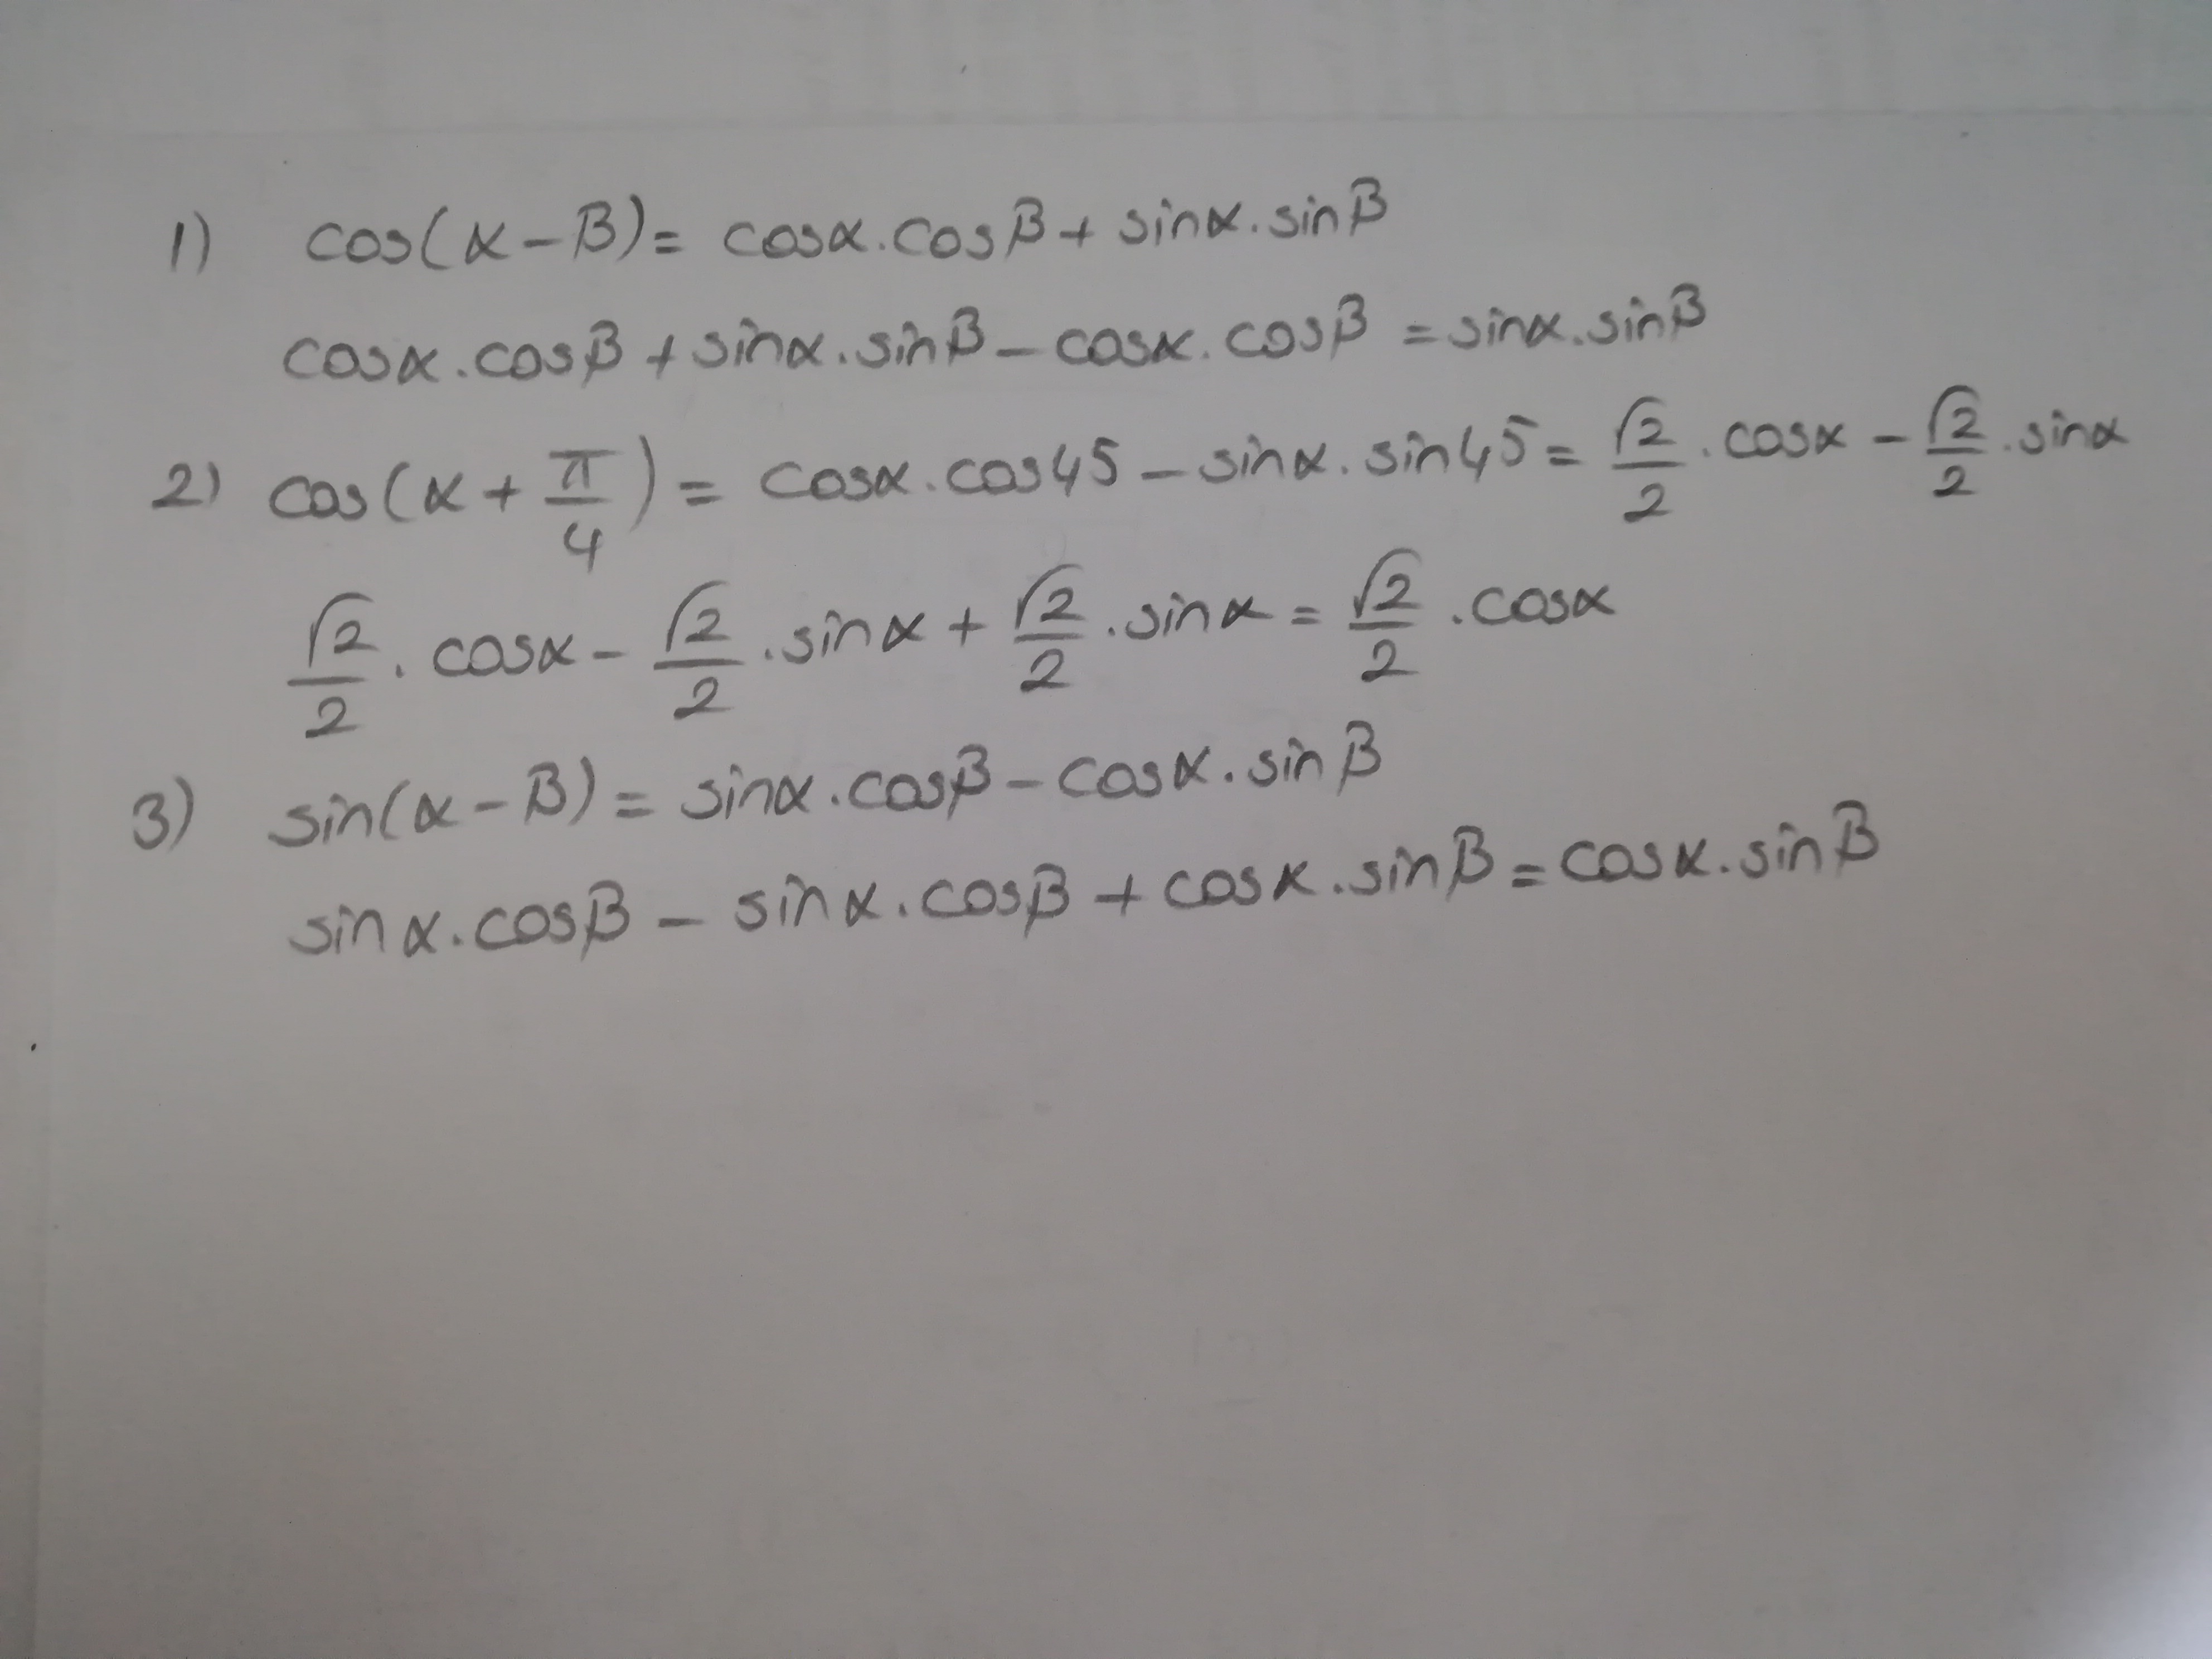 1) cos(α-β)= cosα.cosβ+ sinα.sinβ
cosα.cosβ+sinα.sinβ-cosα.cosβ=sinα.sinβ
2) cos(α+π/4)= cosα.cos45-sinα.sin45=√2/2.cosα-√2/2.sinα
√2/2.cosα-√2/2.sinα+√2/2.sinα=√2/2.cosα
3) sin(α-β)= sinα.cosβ-cosα.sinβ
sinα.cosβ-sinα.cosβ+cosα.sinβ=cosα.sinβ